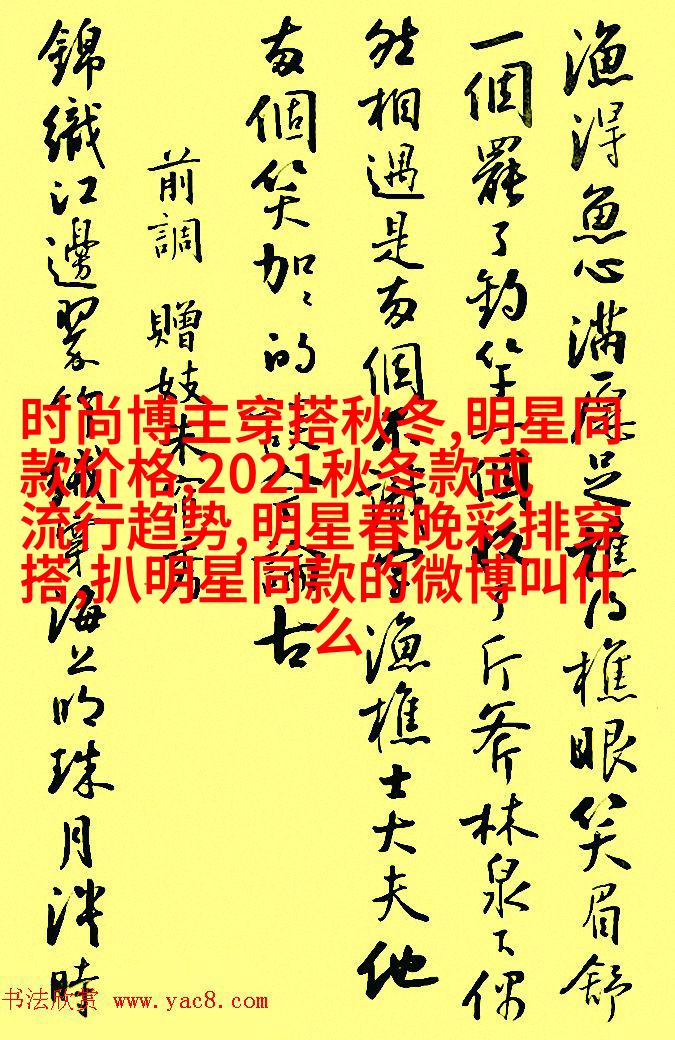 漁得魚心滿愿足樵得樵眼笑眉舒
一個罷了釣竿一個收了斤斧林泉下偶
然相遇是两個不識字漁樵士大夫他
两個笑加加的談今論古
前調 贈妓朱
錦織江邊翠竹絨穿海上明珠月泮時
时尚博主穿搭秋冬,明星同
款价格,2021秋冬款式
流行趋势,明星春晚彩排穿
搭,扒明星同款的微博叫什
么
书法欣赏 www.yac8.com